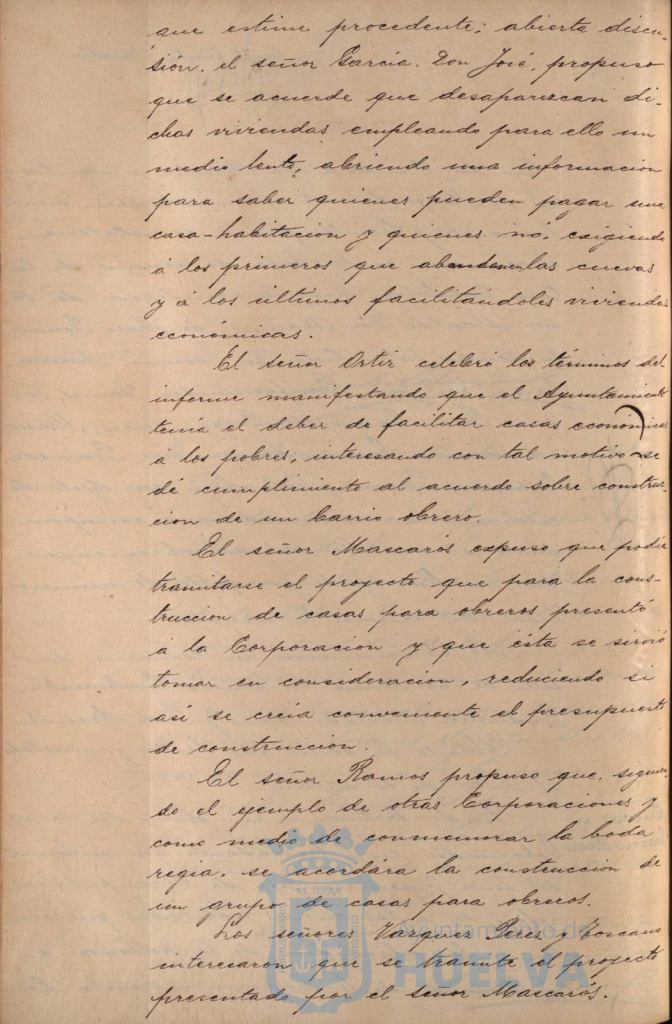 que estime procedente; abierta discu-
sión, el señor García, Don José, propuso
que se acuerde que desaparezcan di-
chas viviendas empleando para ello un
medio lento, abriendo una informacion
para saber quienes pueden pagar una
casa-habitacion y quienes nó, exigiendo
á los primeros que abandonen las cuevas
y á los últimos facilitándoles viviendas
económicas.
El señor Ortiz celebró los términos del
informe manifestando que el Ayuntamiento
tenía el deber de facilitar casas económicas
á los pobres, interesando con tal motivo se
dé cumplimiento al acuerdo sobre construc-
cion de un barrio obrero.
El señor Mascarós expuso que podía
tramitarse el proyecto que para la cons-
truccion de casas para obreros presentó
á la Corporacion y que ésta se sirvió
tomar en consideracion, reduciendo si
así se creía conveniente el presupuesto
de construccion.
El señor Ramos propuso que, siguien-
do el ejemplo de otras Corporaciones y
como medio de conmemorar la boda
regia, se acordára la construccion de
un grupo de casas para obreros.
Los señores Vazquez Perez y Toscano
interesaron que se tramite el proyecto
presentado por el señor Mascarós.
Ayuntamiento de
HUELVA